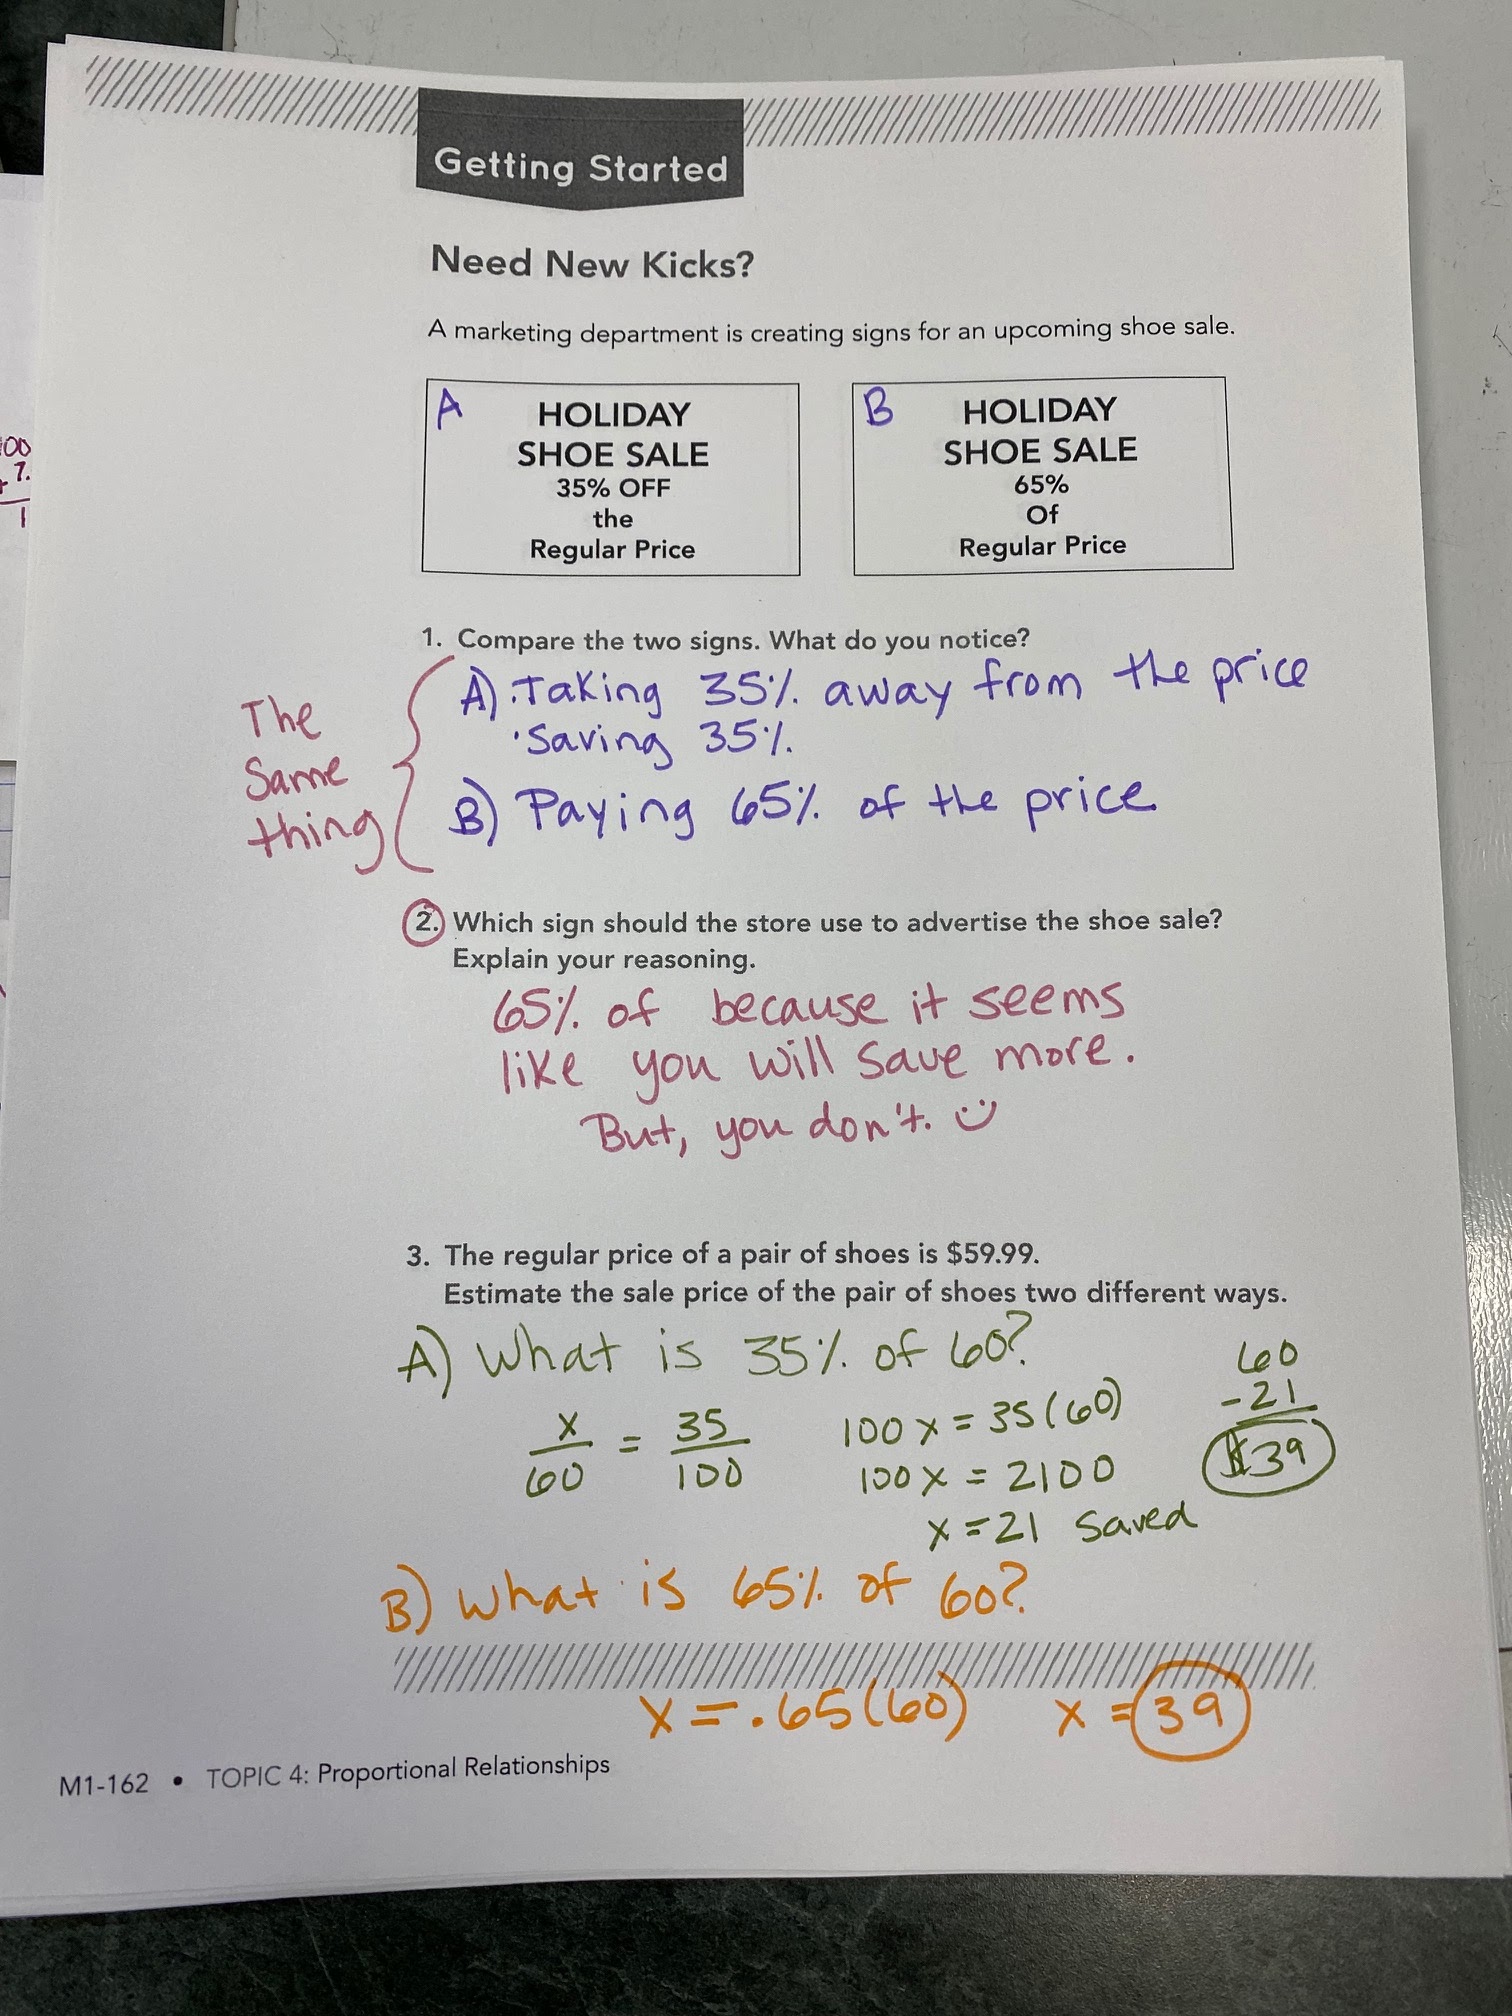 Getting Started
Need New Kicks?
A marketing department is creating signs for an upcoming shoe sale.
A
HOLIDAY
SHOE SALE
35% OFF
the
Regular Price
B
HOLIDAY
SHOE SALE
65%
Of
Regular Price
1. Compare the two signs. What do you notice?
A) · Taking 35% away from the price
· Saving 35%
B) Paying 65% of the price
The
Same
thing
2. Which sign should the store use to advertise the shoe sale?
Explain your reasoning.
65% of because it seems
like you will save more.
But, you don't. :)
3. The regular price of a pair of shoes is $59.99.
Estimate the sale price of the pair of shoes two different ways.
A) What is 35% of 60?
x/60 = 35/100
100x = 35(60)
100x = 2100
x = 21 saved
60
-21
$39
B) What is 65% of 60?
x = .65(60) x = 39
M1-162 • TOPIC 4: Proportional Relationships